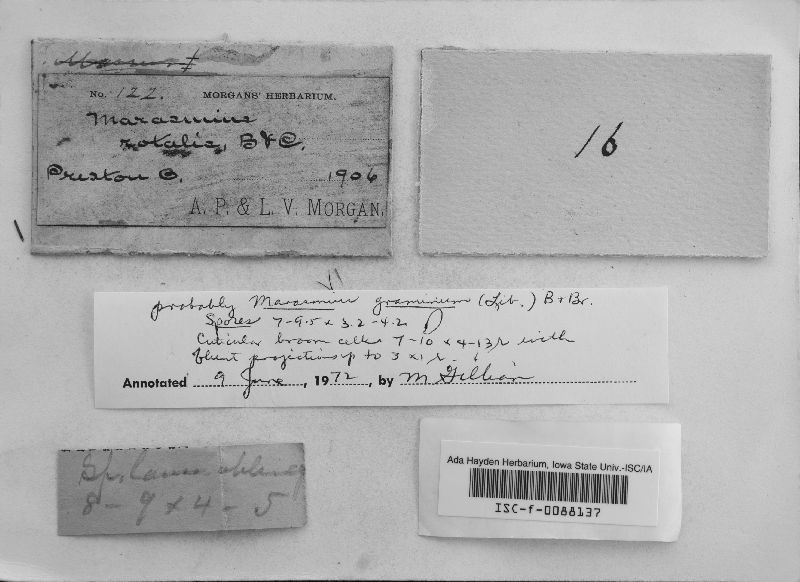 No. 122. MORGANS' HERBARIUM.
Marasmius
rotalis, B & C.
Preston O. 1906
A. P. & L. V. MORGAN.
16
VI
probably Marasmius graminum (Lib.) B + Br.
Spores 7-9.5 x 3.2-4.2
Cuticular broom cells 7-10 x 4-13 µ with
blunt projections up to 3 x 1 µ.
Annotated 9 June, 1972, by M Gilliam
Sp. oblong
8-9 x 4-5
Ada Hayden Herbarium, Iowa State Univ.-ISC/IA
ISC-f-0088137